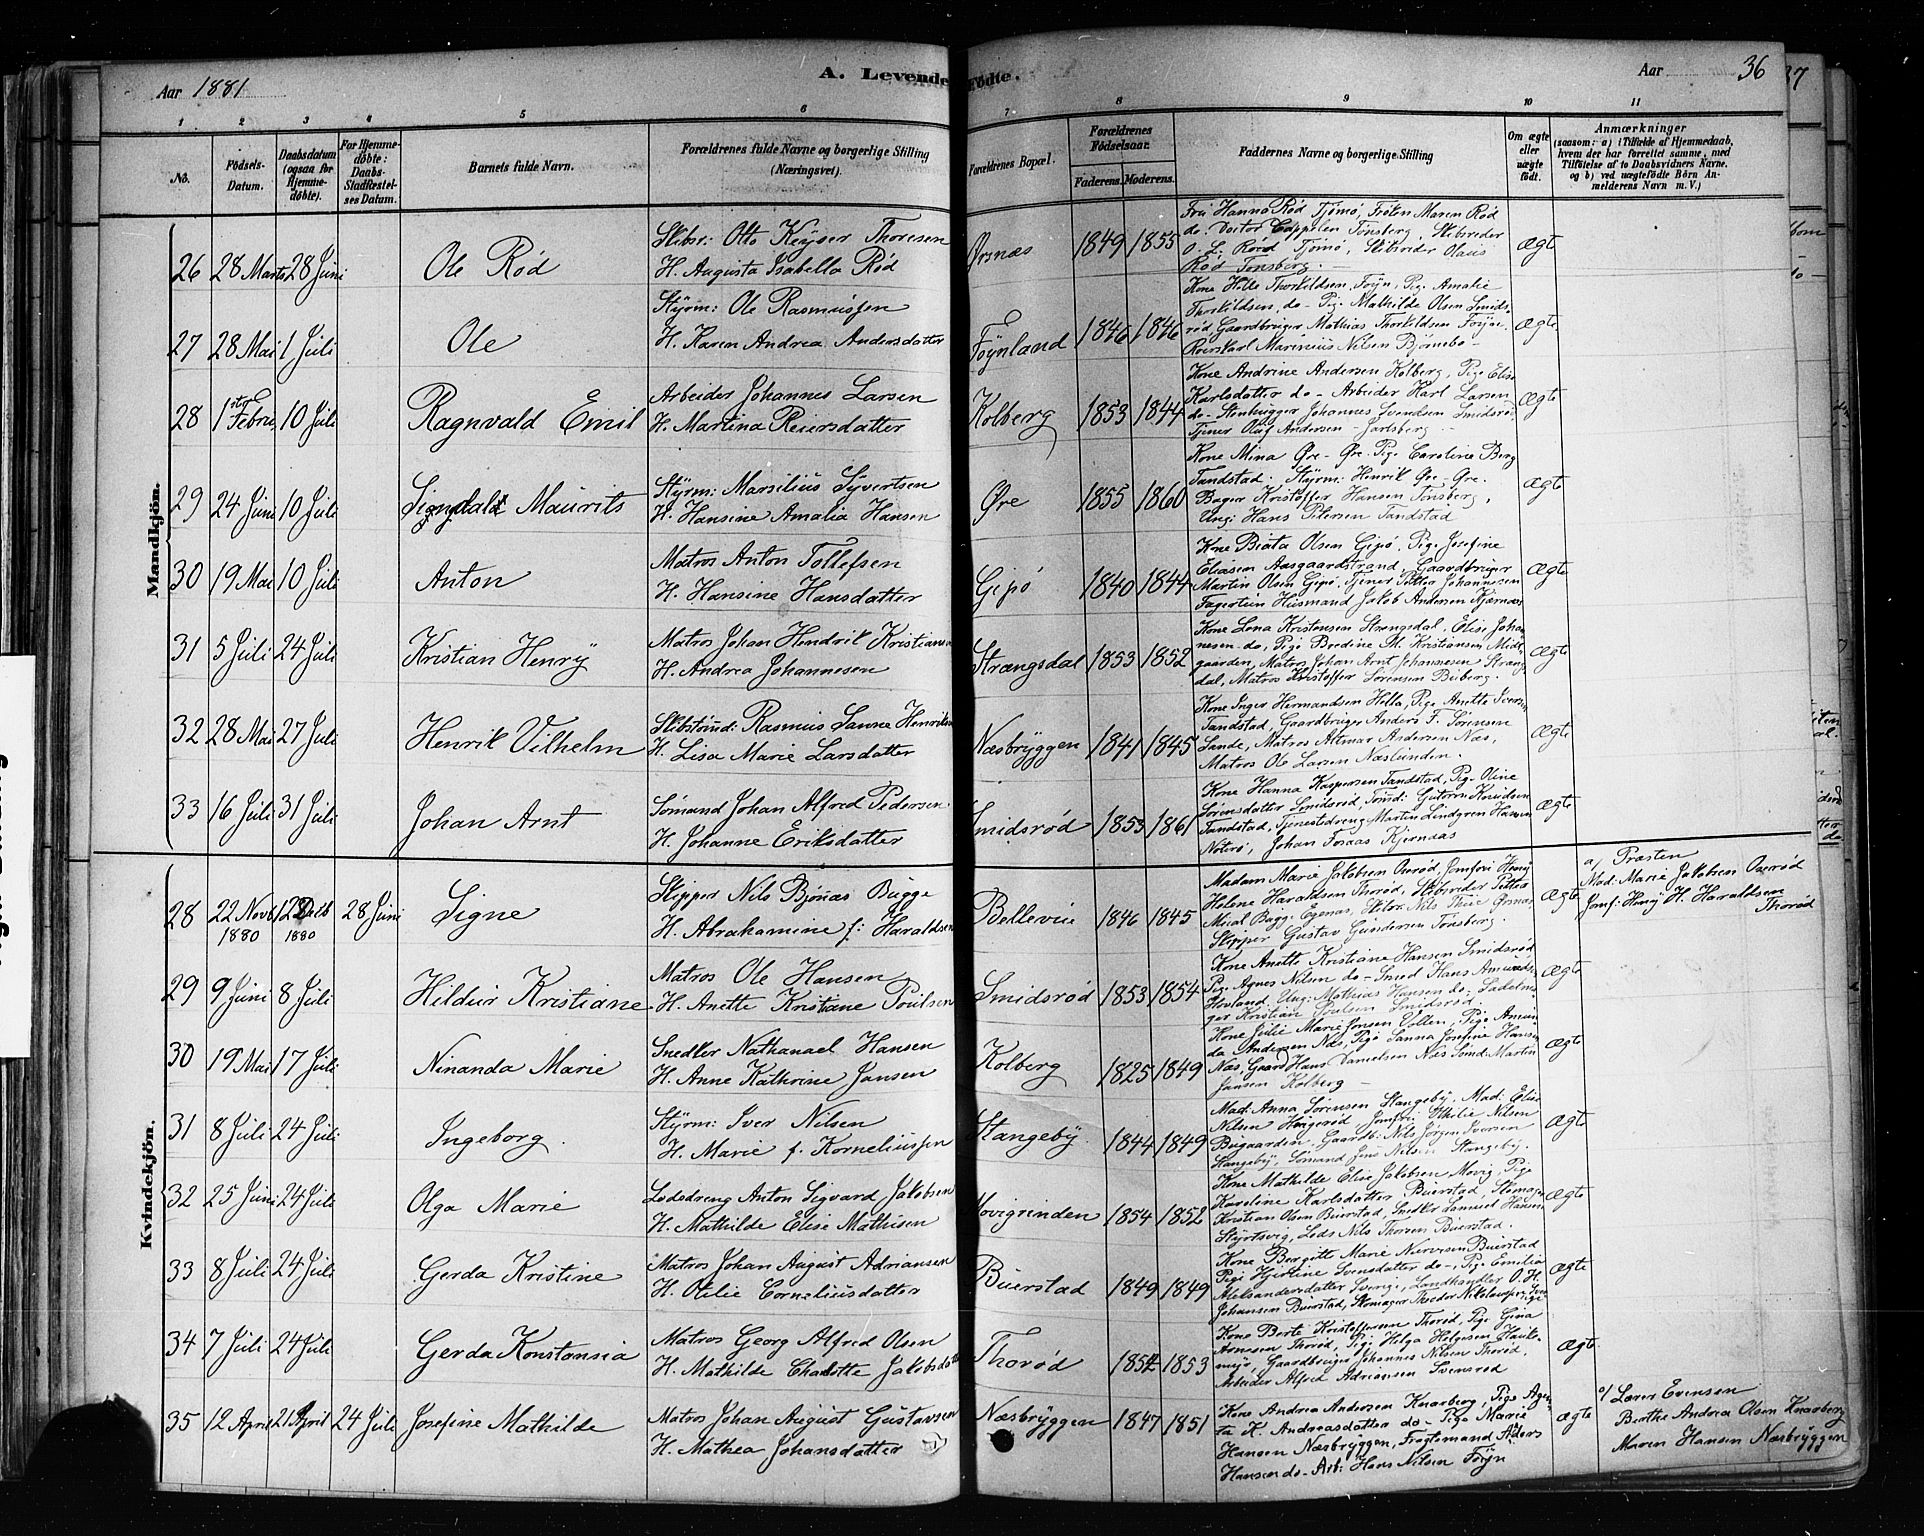 Aar 1881
A. Levende Fødte.
Aar 36
37
1 2 3 4 5 6 7 8 9 10 11
No.
Fødsels-Datum.
Daabsdatum (ogsaa for Hjemmedøbte).
For Hjemmedøbte: Daabs-Stadfæstelses Datum.
Barnets fulde Navn.
Forældrenes fulde Navne og borgerlige Stilling (Næringsvei).
Forældrenes Bopæl.
Forældrenes Fødselsaar.
Faderens. Moderens.
Faddernes Navne og borgerlige Stilling
Om ægte eller uægte født.
Anmærkninger
(saasom: a) i Tilfælde af Hjemmedaab, hvem der har forrettet samme, med Tilføielse af to Daabsvidners Navne, og b) ved uægtefødte Børn Anmelderens Navn m. V.)
Mandkjön.
26 28 Marts 28 Juni Ole Rød
Skibsr: Otto Keyser Thoresen
H. Augusta Isabella Rød
Ørsnæs 1849 1855
Fru Hanna Rød Tjømø, Frøken Maren Rød
do. Doctor Cappelen Tønsberg, Skibsreder
O. L. Rørd Tjømø, Skibsreder Olaus
Rød Tønsberg.
Ægte
27 28 Mai 1 Juli Ole
Styrm: Ole Rasmussen
H. Karen Andrea Andersdatter
Føynland 1846 1846
Kone Helle Thorkildsen, Føyn, Pige Amalie
Thorkildsen, do - Pige Mathilde Olsen Smids-
rød, Gaardbruger Mathias Thorkildsen Føyn.
Marinius Nilsen Bjørnebo -
Ægte
28 1ste Febru. 10 Juli Ragnvald Emil
Arbeider Johannes Larsen
H. Martina Reiersdatter
Kolberg 1853 1844
Kone Andrine Andersen Kolberg, Pige Elise
Karlsdatter do - Arbeider Karl Larsen
do - Stenhugger Johannes Svendsen Smidsrød
Tjener Oluf Andersen - Jarlsberg -
Ægte
29 24 Juni 10 Juli Maurits
Styrm: Marsilius Syvertsen
H. Hansine Amalia Hansen
Øre 1855 1860
Kone Mina Øre - Øre. Pige Caroline Berg
Tandstad. Styrm: Henrik Øre - Øre.
Bager Kristoffer Hansen Tønsberg,
Ung: Hans Petersen Tandstad
Ægte
30 19 Mai 10 Juli Anton
Matros Anton Tollefsen
H. Hansine Hansdatter
Gipø 1840 1844
Kone Beata Olsen Gipø, Pige Josefine
Eliasen Aasgaardstrand, Gaardbruger
Martin Olsen Gipø, Tjener Petter Johannesen
Fagertun Husmand Jakob Andersen Kjærnæs
Ægte
31 5 Juli 24 Juli Kristian Henry
Matros Johan Hendrik Kristiansen
H. Andrea Johannesen
Strængsdal 1853 1852
Kone Lena Kristensen Strengsdal, Elise Johan
nesen - do, Pige Bredine M. Kristiansen Midt-
gaarden, Matros Johan Arnt Johannesen Strængs
dal, Matros Kristoffer Sørensen Buberg.
Ægte
32 28 Mai 27 Juli Henrik Vilhelm
Skibstømd: Rasmus Sanne Henriksen
H. Lisa Marie Larsdatter
Næsbryggen 1841 1845
Kone Inger Hermandsen Hella, Pige Anette Iversen
Tandstad, Gaardbruger Anders F. Sørensen
Sande, Matros Altmar Andersen Næs,
Matros Ole Larsen Næslunden.
Ægte
33 16 Juli 31 Juli Johan Arnt
Sømand Johan Alfred Pedersen
H. Johanne Eriksdatter
Smidsrød 1853 1861
Kone Hanna Kaspersen Tandstad, Pige Oline
Sørensdatter Smidsrød, Tømd: Gutorm Knudsen
Tandstad, Tjenestedreng Martin Lindgren Hansen
Nøterø, Johan Foraas Kjernaas
Ægte
Kvindekjön.
28 22 Novb. 1880 22 Decb 1880 28 Juni Signe
Skipper Nils Bjønæs Bugge
H. Abrahamine f: Haraldsen
Bellevue 1846 1845
Madam Marie Jakobsen Oserød, Jomfru Henny
Helene Haraldsen Thorød, Skibsreder Petter
Bugge Egenæs, Skibsr: Nils Thue Ørsnæs
Skipper Gustav Gundersen Tønsberg.
Ægte
a/ Præsten
Mad: Marie Jakobsen Oserød
Jomf: Heny H. Haraldsen
Thorød
29 9 Juni 8 Juli Hildur Kristiane
Matros Ole Hansen
H. Anette Kristiane Poulsen
Smidsrød 1853 1854
Kone Anette Kristiane Hansen Smidsrød
Pige Agnes Nilsen do - Smed Hans Amunds.
Hovland, Ung: Mathias Hansen do. Sadelma
ger Kristian Poulsen Smidsrød.
Ægte
30 19 Mai 17 Juli Ninanda Marie
Snedker Nathanael Hansen
H. Anne Kathrine Jansen
Kolberg 1825 1849
Kone Julie Marie Jensen Vollen, Pige Amun
da Andersen Næs, Pige Sanna Josefine Hansen
Næs, Gaard: Hans Danielsen Næs Sømd: Martin
Jansen Kolberg -
Ægte
31 8 Juli 24 Juli Ingeborg.
Styrm: Iver Nilsen
H. Marie f. Korneliussen
Stangeby 1844 1849
Mad: Anna Sørensen Stangeby, Mad: Elise
Nilsen Hingerød Jomfru Othilie Nilsen
Bugaarden, Gaardb: Nils Jørgen Iversen
Stangeby, Sømand Jens Nilsen Stangeby.
Ægte
32 25 Juni 24 Juli Olga Marie
Lodsdreng Anton Sigvard Jakobsen
H. Mathilde Elise Mathisen
Movigrinden 1854 1852
Kone Mathilde Elise Jakobsen Movig, Pige
Karoline Karlsdatter Buerstad, Skomager
Kristian Olsen Buerstad, Snedker Samuel Hansen
Styrtsvig, Lods Nils Thoresen Buerstad.
Ægte
33 8 Juli 24 Juli Gerda Kristine
Matros Johan August Adriansen
H. Otilie Corneliusdatter
Buerstad 1849 1849
Kone Bergitte Marie Buerstad
Pige Hjertine Svensdatter do -, Pige Emilia
Aleksandersdatter Sverige, Landhandler O. H.
Johansen Buerstad, Skomager Theodor
Ægte
34 7 Juli 24 Juli Gerda Konstansia
Matros Georg Alfred Olsen
H. Mathilde Charlotte Jakobsdatter
Thorød 1854 1853
Kone Berte Kristoffersen Thorød, Pige Gina
Arnesen Thorød, Pige Helga Helgesen Hauke-
myr, Gaardbruger Johannes Nilsen Thorød,
Arbeider Alfred Adriansen Svensrød
Ægte
35 12 April 21 April 24 Juli Josefine Mathilde
Matros Johan August Gustavsen
H. Mathea Johansdatter
Næsbryggen 1847 1851
Kone Andrea Andersen Knarberg, Pige Agne
ta K. Andreasdatter do - Pige Marie
Hansen Næsbryggen, Fragtemand Anders
Hansen do - Arb: Hans Nilsen Føyn
Ægte
a/ Lærer Evensen
Berthe Andrea Olsen Knarberg
Maren Hansen Næsbryggen